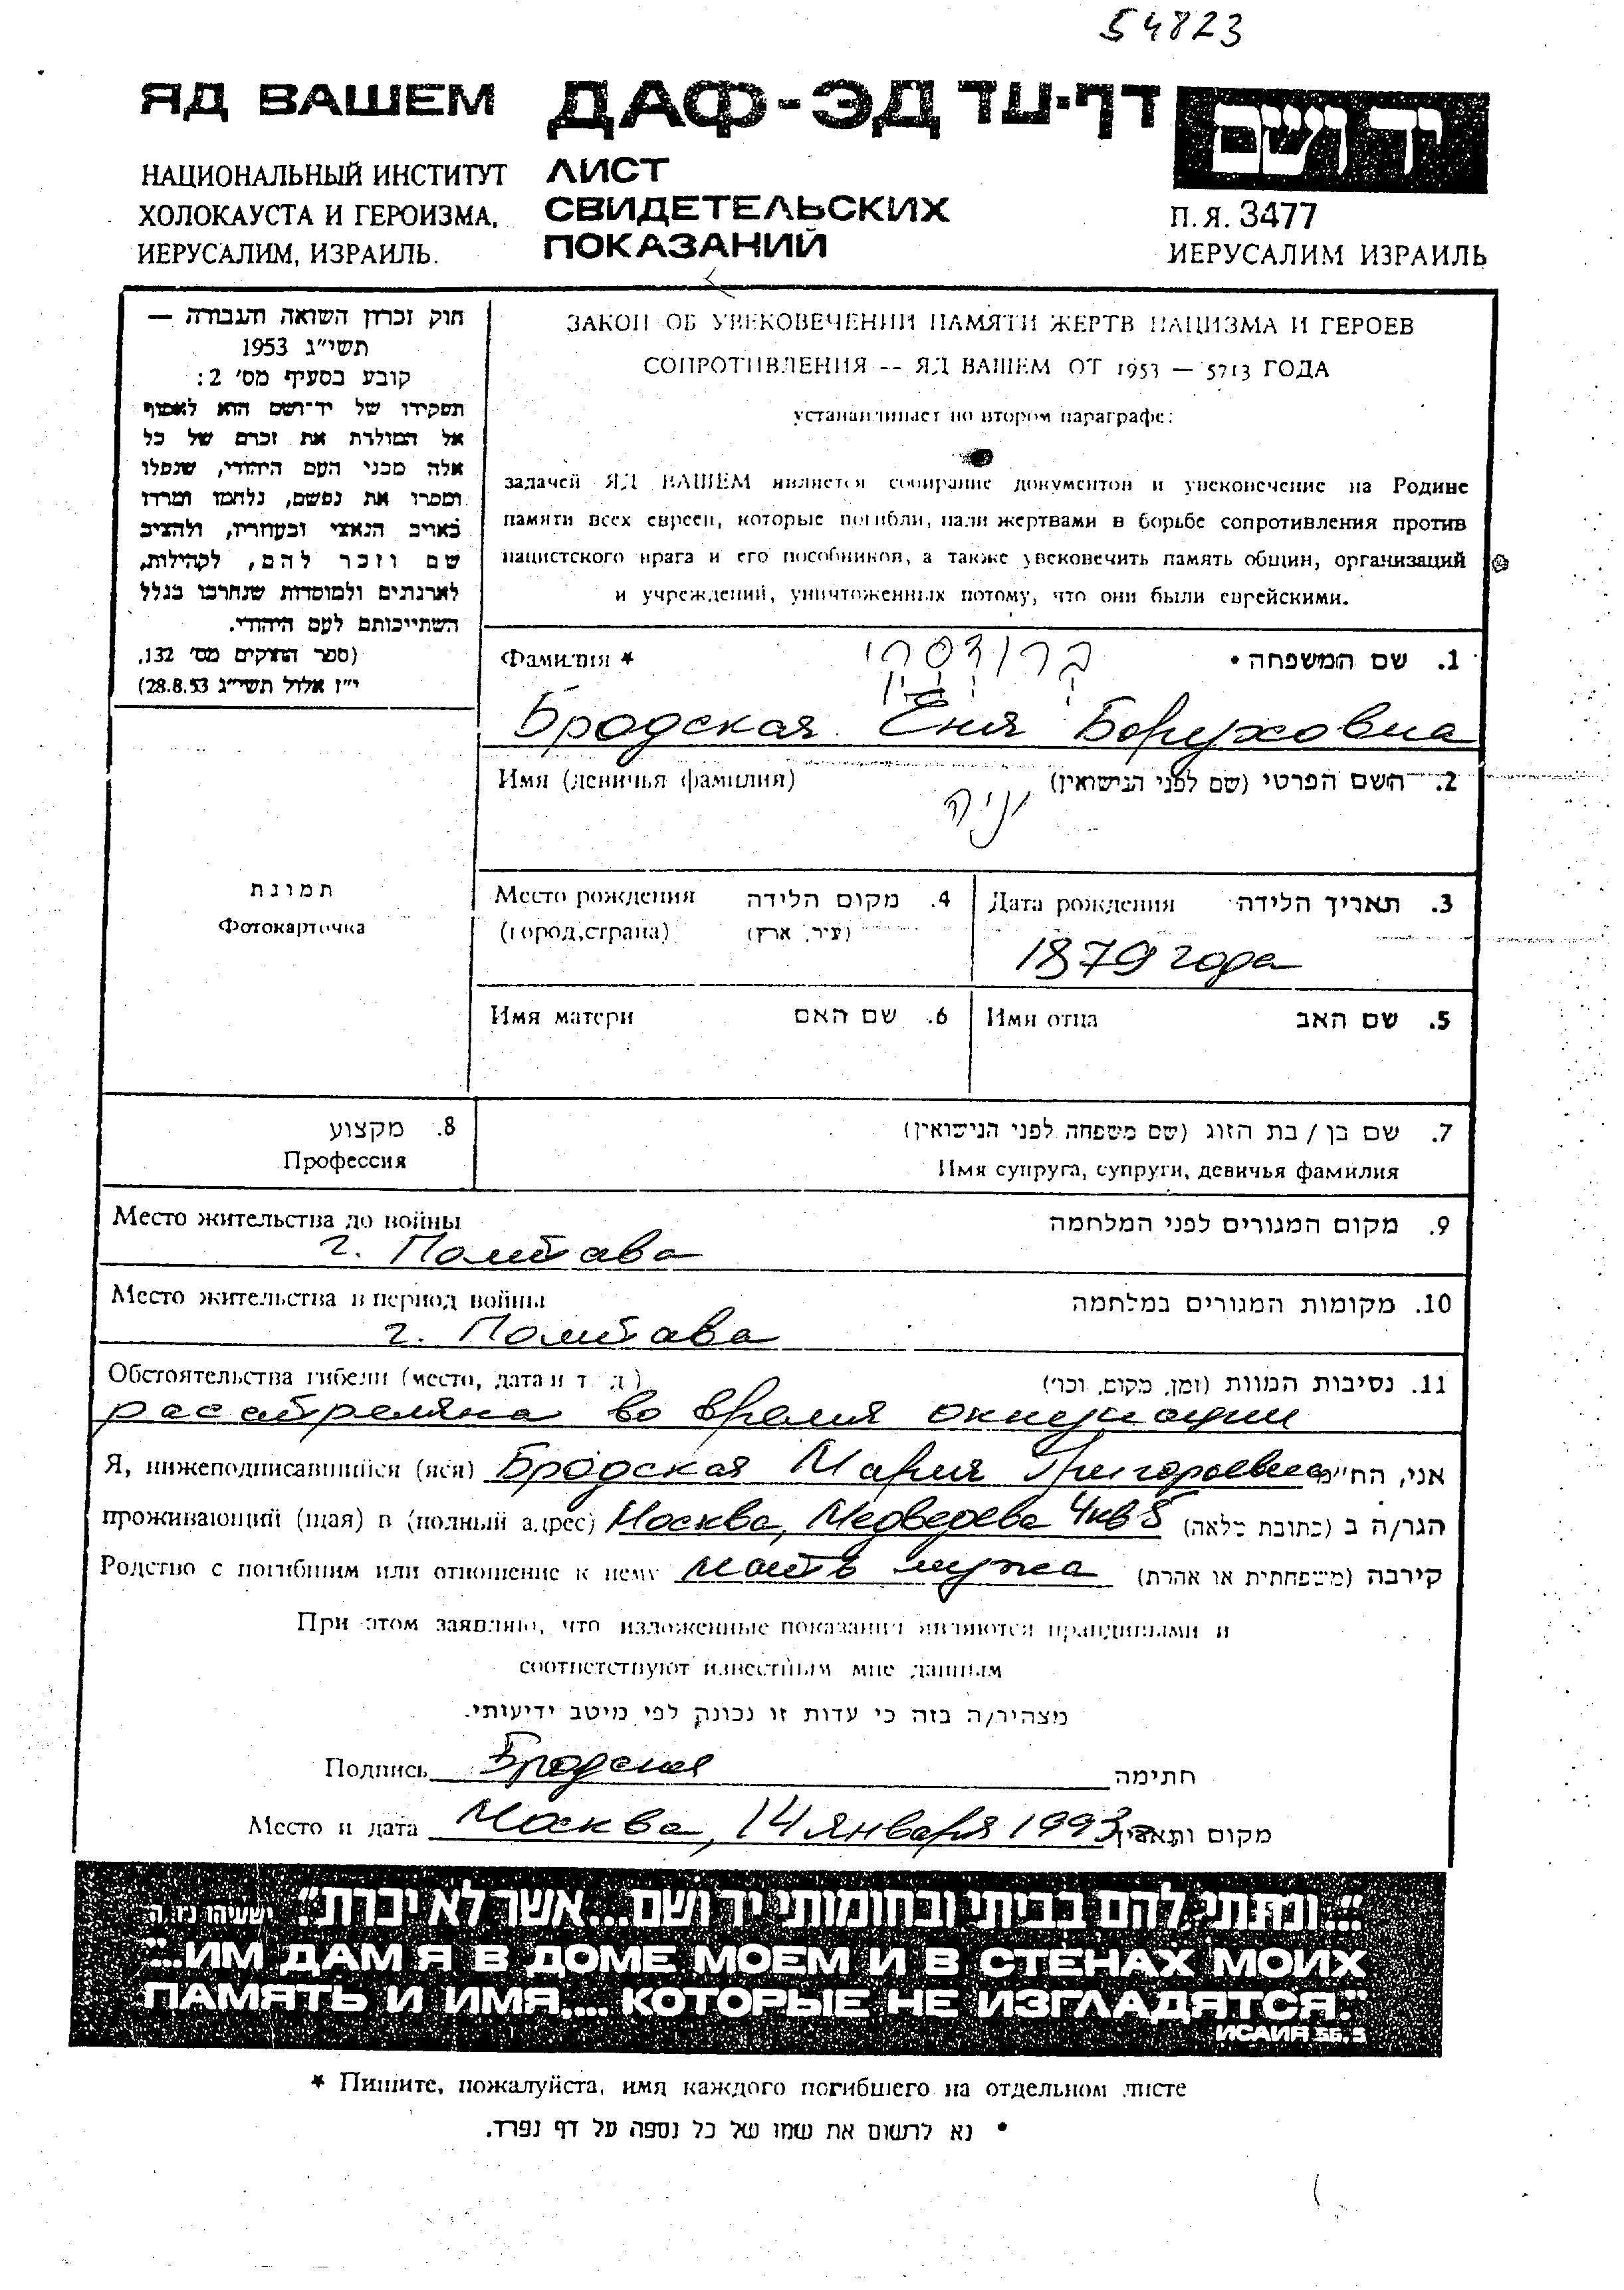 54823
ЯД ВАШЕМ ДАФ-ЭД דף-עד יד ושם
НАЦИОНАЛЬНЫЙ ИНСТИТУТ
ХОЛОКАУСТА И ГЕРОИЗМА,
ИЕРУСАЛИМ, ИЗРАИЛЬ.
ЛИСТ
СВИДЕТЕЛЬСКИХ
ПОКАЗАНИЙ
П.Я. 3477
ИЕРУСАЛИМ ИЗРАИЛЬ
חוק זכרון השואה והגבורה —
תשי״ג 1953
קובע בסעיף מס׳ 2:
תפקידו של יד־ושם הוא לאסוף
אל המולדת את זכרם של כל
אלה מבני העם היהודי, שנפלו
ומסרו את נפשם, נלחמו ומרדו
באויב הנאצי ובעוזריו, ולהציב
שם וזכר להם, לקהילות,
לארגונים ולמוסדות שנחרבו בגלל
השתייכותם לעם היהודי.
(ספר החוקים מס׳ 132,
י״ז אלול תשי״ג 28.8.53)
ЗАКОН ОБ УВЕКОВЕЧЕНИИ ПАМЯТИ ЖЕРТВ НАЦИЗМА И ГЕРОЕВ
СОПРОТИВЛЕНИЯ -- ЯД ВАШЕМ ОТ 1953 — 5713 ГОДА
устанавливает во втором параграфе:
задачей ЯД ВАШЕМ является собирание документов и увековечение на Родине
памяти всех евреев, которые погибли, пали жертвами в борьбе сопротивления против
нацистского врага и его пособников, а также увековечить память общин, организаций
и учреждений, уничтоженных потому, что они были еврейскими.
Фамилия * ברודסקי 1. שם המשפחה •
Бродская Еня Боруховна
Имя (девичья фамилия) 2. השם הפרטי (שם לפני הנישואין)
יניה
תמונת
Фотокарточка
Место рождения 4. מקום הלידה
(город,страна) (עיר, ארץ)
Дата рождения 3. תאריך הלידה
1879 года
Имя матери 6. שם האם
Имя отца 5. שם האב
8. מקצוע
Профессия
7. שם בן / בת הזוג (שם משפחה לפני הנישואין)
Имя супруга, супруги, девичья фамилия
Место жительства до войны 9. מקום המגורים לפני המלחמה
г. Полтава
Место жительства в период войны 10. מקומות המגורים במלחמה
г. Полтава
Обстоятельства гибели (место, дата и т. д.) 11. נסיבות המוות (זמן, מקום, וכו׳)
расстреляна во время оккупации
Я, нижеподписавшийся (яся) Бродская Мария Григорьевна אני, הח״מ
проживающий (щая) в (полный адрес) Москва, Медведева 4 кв 8 הגר/ה ב (כתובת מלאה)
Родство с погибшим или отношение к нему мать мужа קירבה (משפחתית או אחרת)
При этом заявляю, что изложенные показания являются правдивыми и
соответствуют известным мне данным
מצהיר/ה בזה כי עדות זו נכונה לפי מיטב ידיעותי.
Подпись Бродская חתימה
Место и дата Москва, 14 января 1993 г. מקום ותאריך
״...ונתתי להם בביתי ובחומותי יד ושם...אשר לא יכרת״. ישעיהו נו, ה
"...ИМ ДАМ Я В ДОМЕ МОЕМ И В СТЕНАХ МОИХ
ПАМЯТЬ И ИМЯ.... КОТОРЫЕ НЕ ИЗГЛАДЯТСЯ."
ИСАИЯ 56.5
* Пишите, пожалуйста, имя каждого погибшего на отдельном листе
• נא לרשום את שמו של כל נספה על דף נפרד.